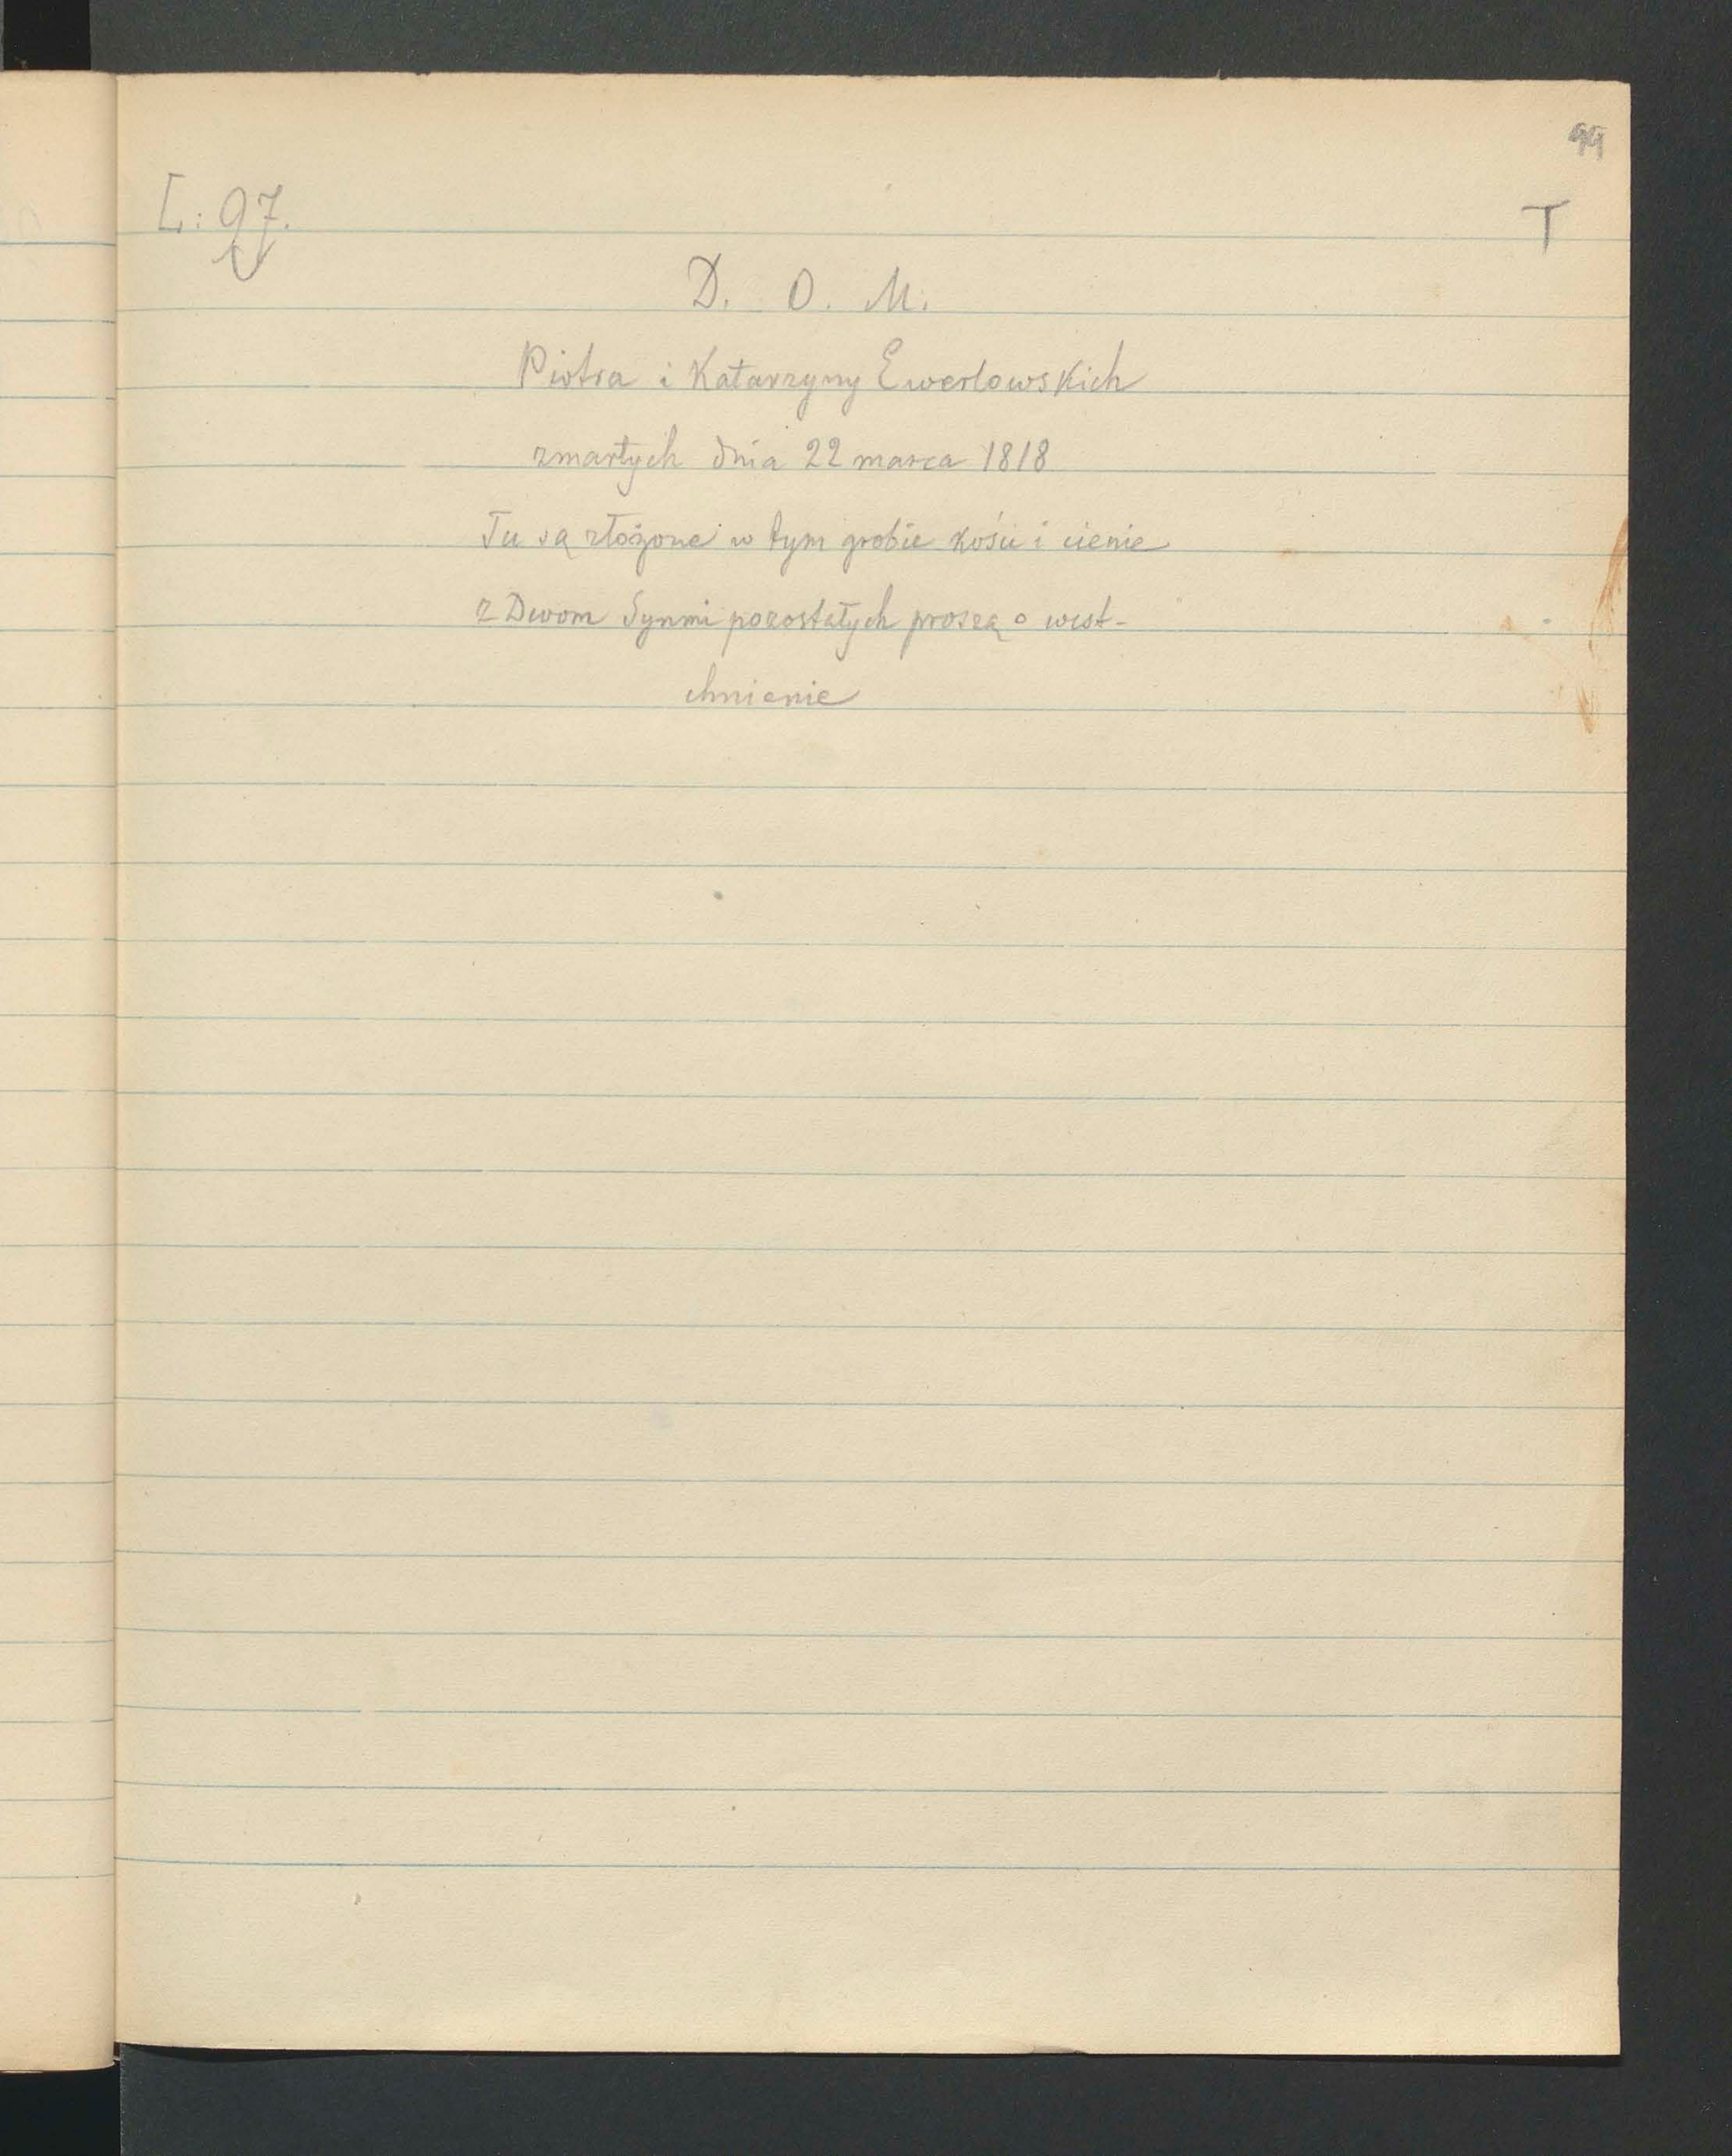 99
L: 97.
T
D. O. M.
Piotra i Katarzyny Ewerlowskich
zmartych dnia 22 marca 1818
Tu są złożone w tym grobie kości i cienie
z Dwom Synmi pozostałych proszą o west-
chnienie